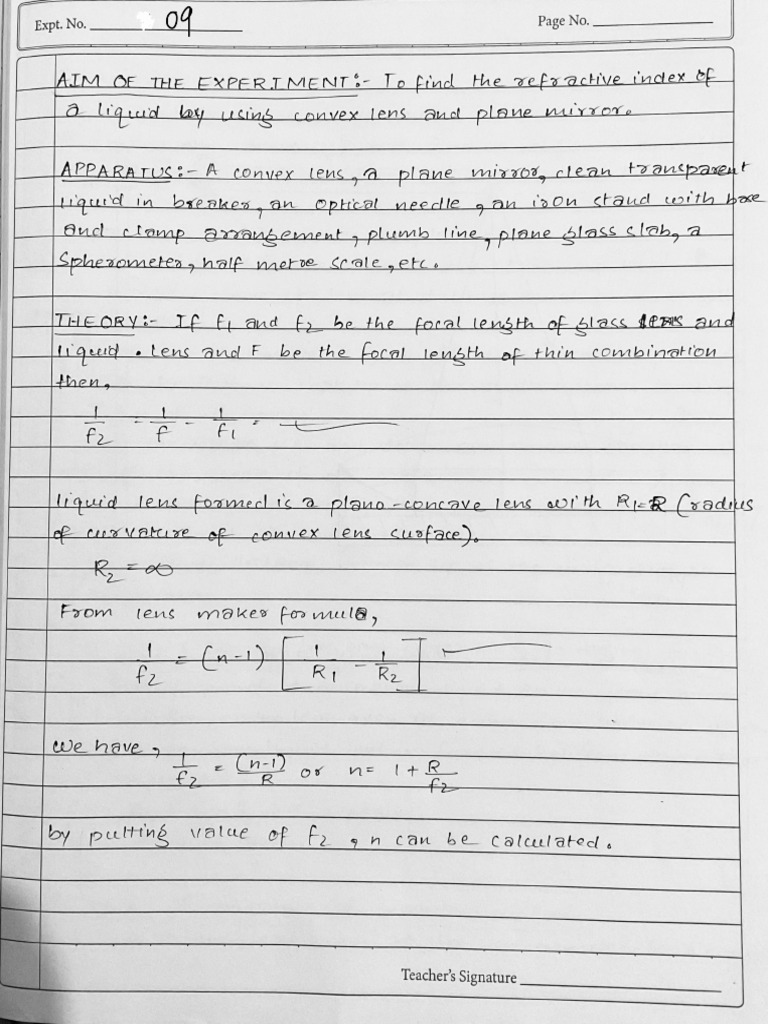 Expt. No. 09
Page No.
AIM OF THE EXPERIMENT:- To find the refractive index of
a liquid by using convex lens and plane mirror.
APPARATUS:- A convex lens, a plane mirror, clean transparent
liquid in breaker, an optical needle, an iron stand with base
and clamp arrangement, plumb line, plane glass slab, a
Spherometer, half metre scale, etc.
THEORY:- If f1 and f2 be the focal length of glass lens and
liquid. lens and F be the focal length of thin combination
then,
1/f2 = 1/f - 1/f1
liquid lens formed is a plano-concave lens with R1=R (radius
of curvature of convex lens surface).
R2 = ∞
From lens maker formula,
1/f2 = (n-1) [1/R1 - 1/R2]
we have, 1/f2 = (n-1)/R or n= 1+ R/f2
by putting value of f2, n can be calculated.
Teacher's Signature